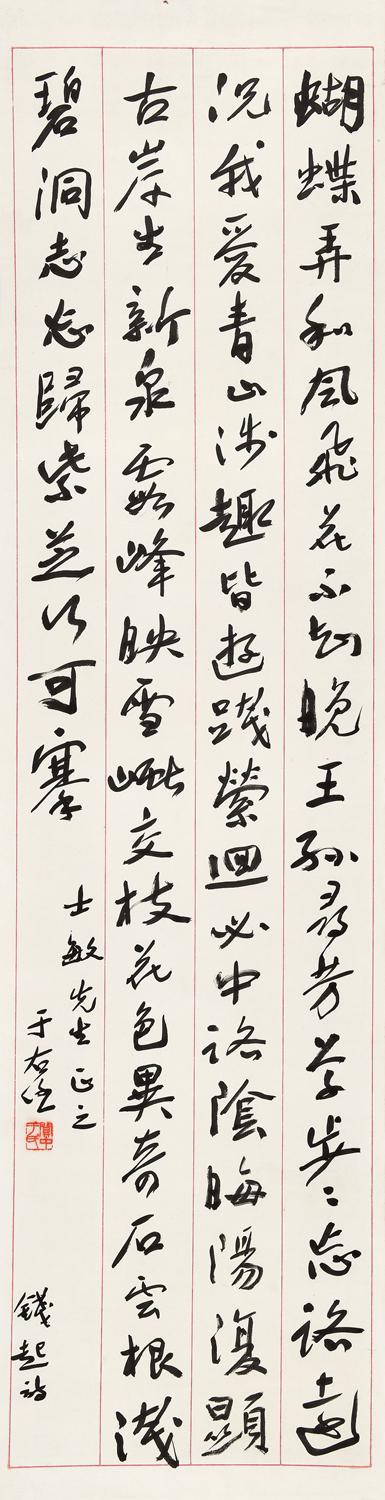 蝴蝶弄和風飛花不知晚王孫尋芳草步々忘路遠
況我愛青山涉趣皆遊踐縈迴必中路陰晦陽復顯
古岸生新泉霞峰映雪巘交枝花色異奇石雲根淺
碧洞志忘歸紫芝行可搴
士敏先生正之
于右任
關中于氏
錢起詩